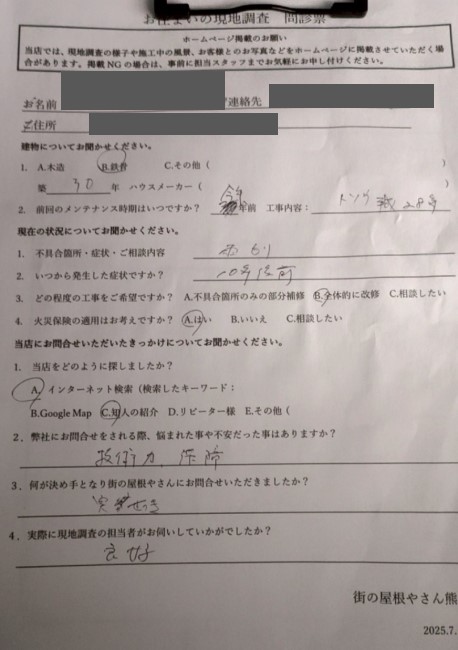 お住まいの現地調査 問診票
ホームページ掲載のお願い
当店では、現地調査の様子や施工中の風景、お客様とのお写真などをホームページに掲載させていただく場
合があります。掲載NGの場合は、事前に担当スタッフまでお気軽にお申し付けください。
お名前 連絡先
ご住所
建物についてお聞かせください。
1. A.木造 B.鉄骨 C.その他( )
築 30 年 ハウスメーカー(
2. 前回のメンテナンス時期はいつですか? 年前 工事内容:
現在の状況についてお聞かせください。
1. 不具合箇所・症状・ご相談内容 雨もり
2. いつから発生した症状ですか?
3. どの程度の工事をご希望ですか? A.不具合箇所のみの部分補修 B.全体的に改修 C.相談したい
4. 火災保険の適用はお考えですか? A.はい B.いいえ C.相談したい
当店にお問合せいただいたきっかけについてお聞かせください。
1. 当店をどのように探しましたか?
A. インターネット検索(検索したキーワード:
B.Google Map C.知人の紹介 D.リピーター様 E.その他(
2. 弊社にお問合せをされる際、悩まれた事や不安だった事はありますか?
技術力、保障
3. 何が決め手となり街の屋根やさんにお問合せいただきましたか?
4. 実際に現地調査の担当者がお伺いしていかがでしたか?
良好
街の屋根やさん熊
2025.7.